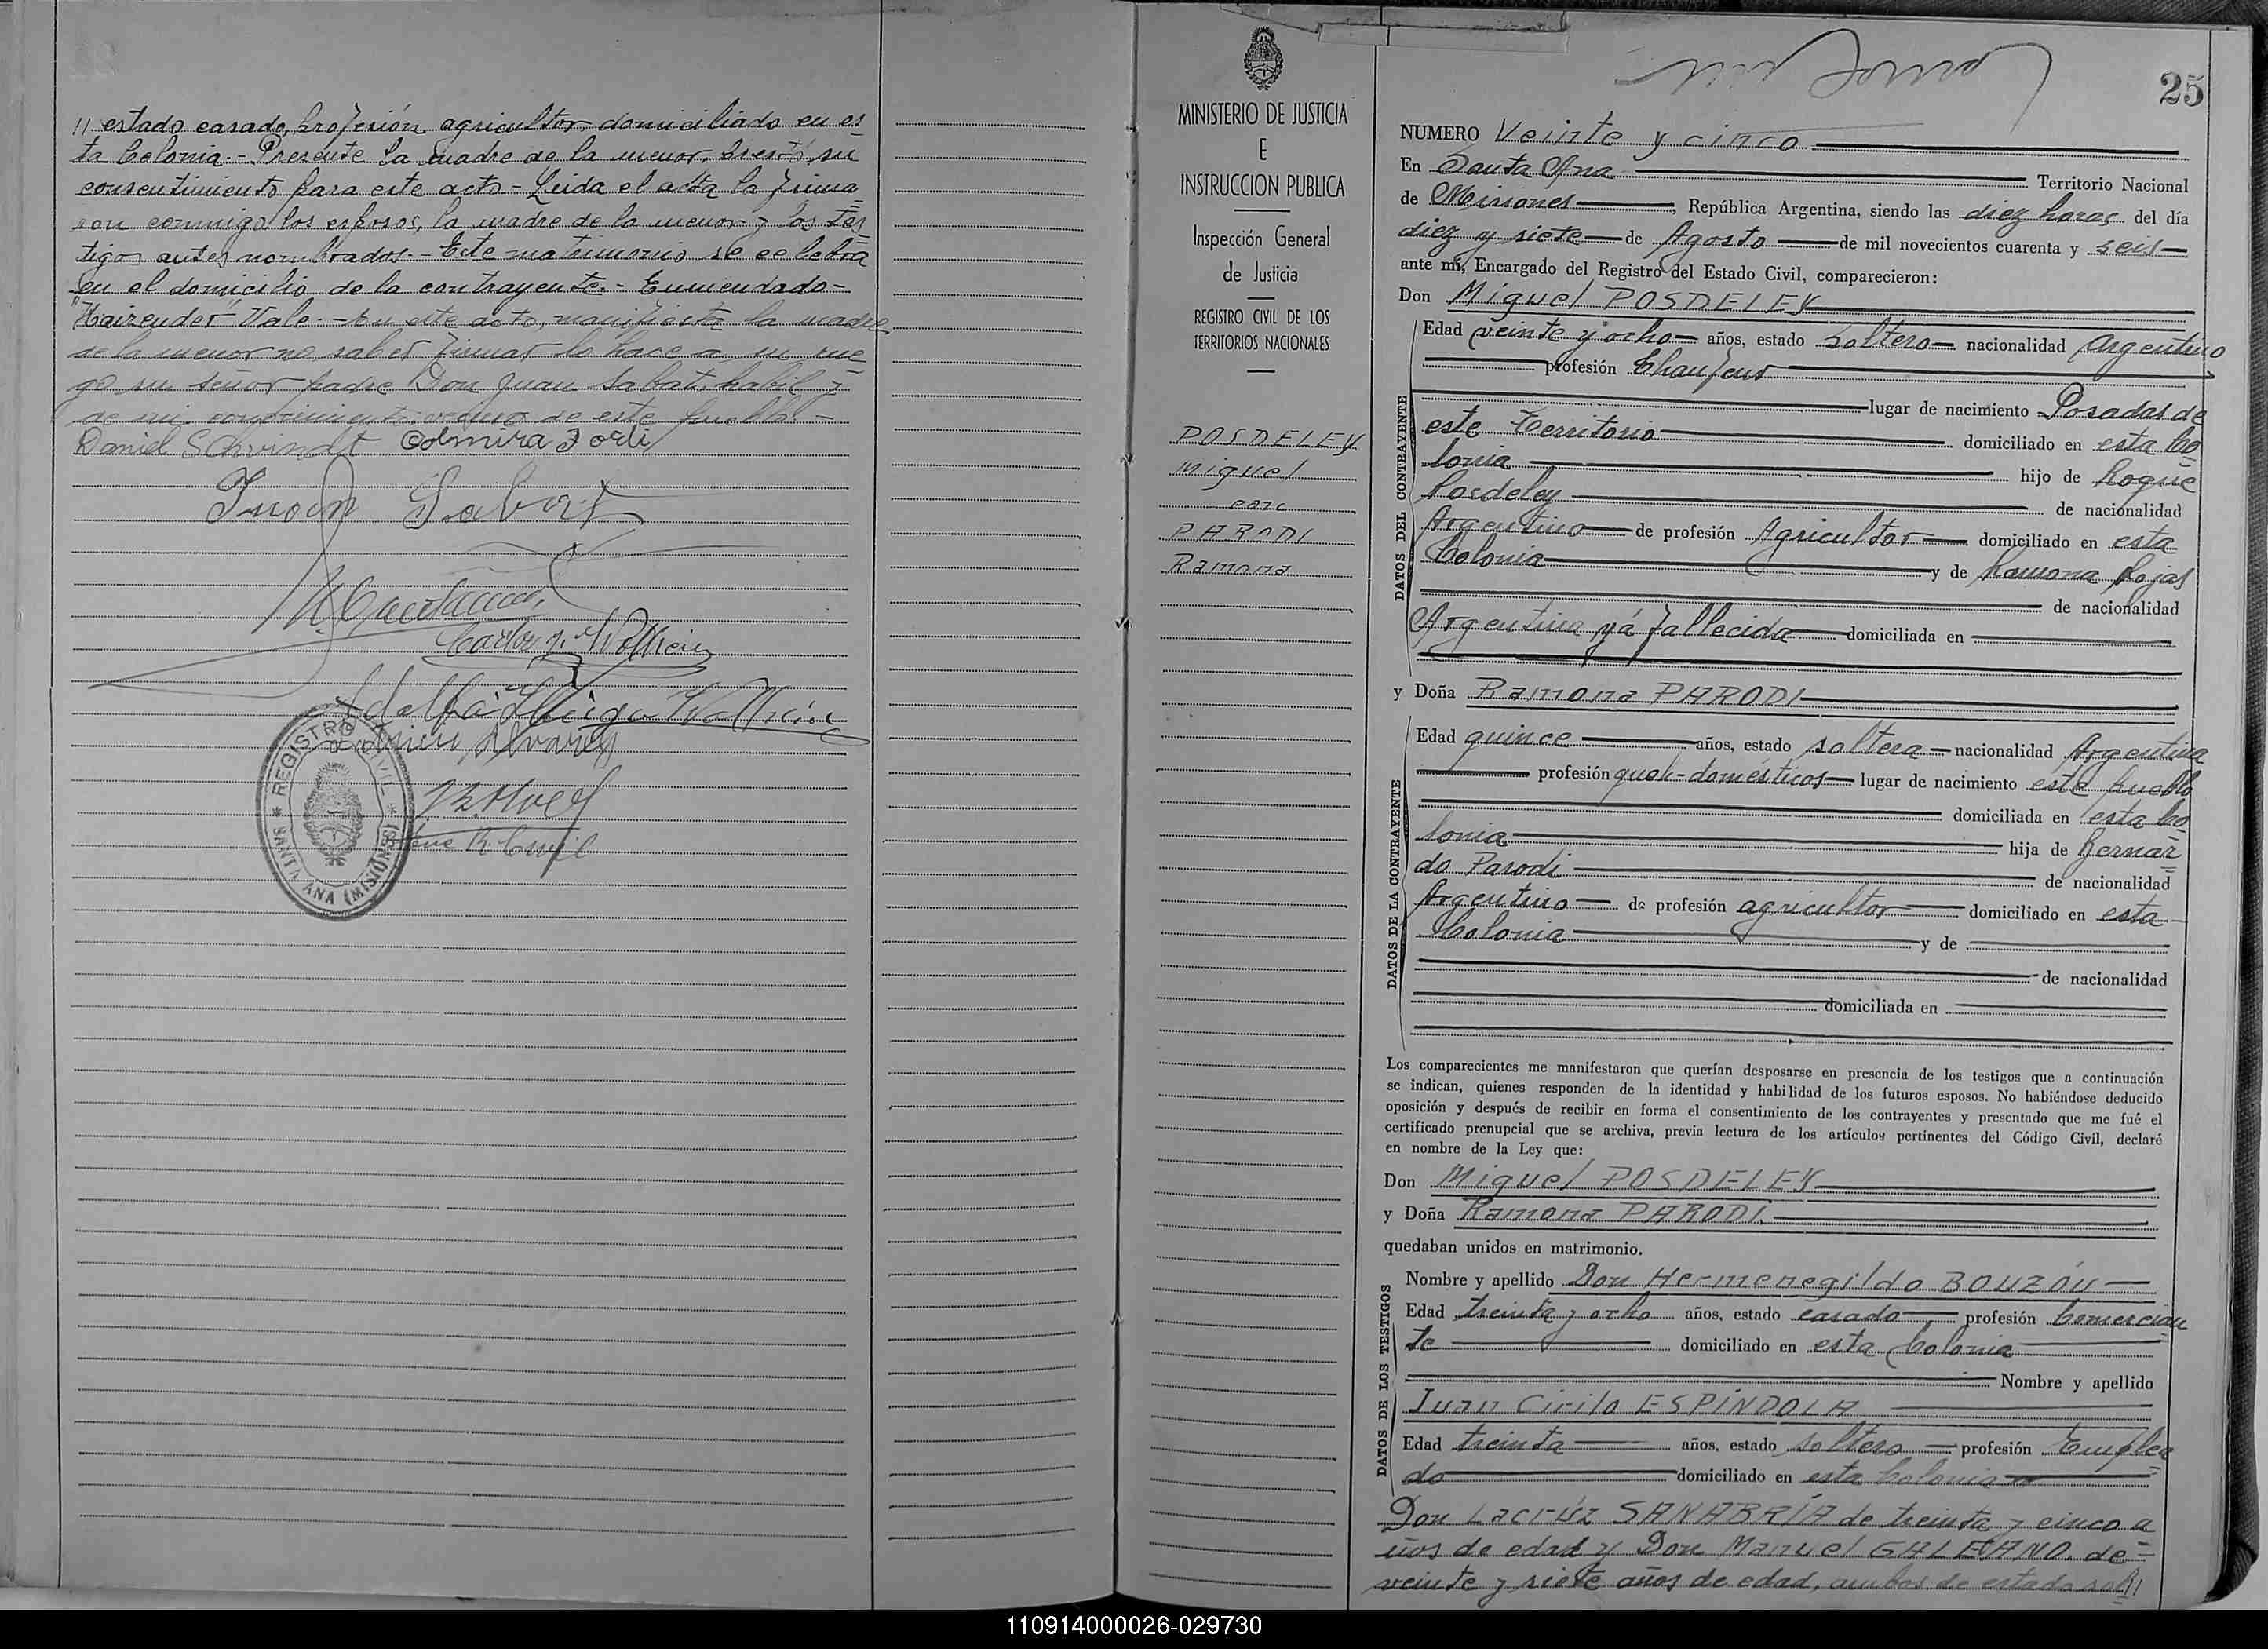 11 estado casado, profesión agricultor, domiciliado en es
ta Colonia.- Presente la madre de la menor, prestó su
consentimiento para este acto - Leida el acta la firma
con conmigo los esposos, la madre de la menor y los tes
tigos antes nombrados.- Este matrimonio se celebra
en el domicilio de la contrayente.- Enmendado-
Vale.- En este acto, manifiesta la madre
de la menor no saber firmar lo hace a su rue
go su señor padre Don Juan Sabat, habil y
de mi conocimiento, vecino de este pueblo.-
Daniel Schvindt
Juan Sabat
Alvarez
REGISTRO CIVIL
SANTA ANA (MISIONES)
MINISTERIO DE JUSTICIA
E
INSTRUCCION PUBLICA
Inspección General
de Justicia
REGISTRO CIVIL DE LOS
TERRITORIOS NACIONALES
POSDELEY
Miguel
con
PARODI
Ramona
25
NUMERO Veinte y cinco
En Santa Ana Territorio Nacional
de Misiones, República Argentina, siendo las diez horas del día
diez y siete de Agosto de mil novecientos cuarenta y seis
ante mí, Encargado del Registro del Estado Civil, comparecieron:
Don Miguel POSDELEY
Edad veinte y ocho años, estado soltero nacionalidad Argentino
profesión Chaufeur
lugar de nacimiento Posadas de
este Territorio domiciliado en esta Co
lonia hijo de Roque
Posdeley de nacionalidad
Argentino de profesión Agricultor domiciliado en esta
Colonia y de Ramona Rojas
de nacionalidad
Argentina yá fallecida domiciliada en
DATOS DEL CONTRAYENTE
y Doña Ramona PARODI
Edad quince años, estado soltera nacionalidad Argentina
profesión queh-domésticos lugar de nacimiento este pueblo
domiciliada en esta Co
lonia hija de Bernar
do Parodi de nacionalidad
Argentino de profesión agricultor domiciliado en esta
Colonia y de
de nacionalidad
domiciliada en
DATOS DE LA CONTRAYENTE
Los comparecientes me manifestaron que querían desposarse en presencia de los testigos que a continuación
se indican, quienes responden de la identidad y habilidad de los futuros esposos. No habiéndose deducido
oposición y después de recibir en forma el consentimiento de los contrayentes y presentado que me fué el
certificado prenupcial que se archiva, previa lectura de los artículos pertinentes del Código Civil, declaré
en nombre de la Ley que:
Don Miguel POSDELEY
y Doña Ramona PARODI
quedaban unidos en matrimonio.
Nombre y apellido Don Hermenegildo BOUZÓN
Edad treinta y ocho años, estado casado profesión Comercian
te domiciliado en esta Colonia
Nombre y apellido
Juan Cirilo ESPÍNDOLA
Edad treinta años, estado soltero profesión Emplea
do domiciliado en esta Colonia
DATOS DE LOS TESTIGOS
Don SANABRÍA de treinta y cinco a
ños de edad y Don Manuel GALEANO, de
veinte y siete años de edad, ambos de estado
110914000026-029730